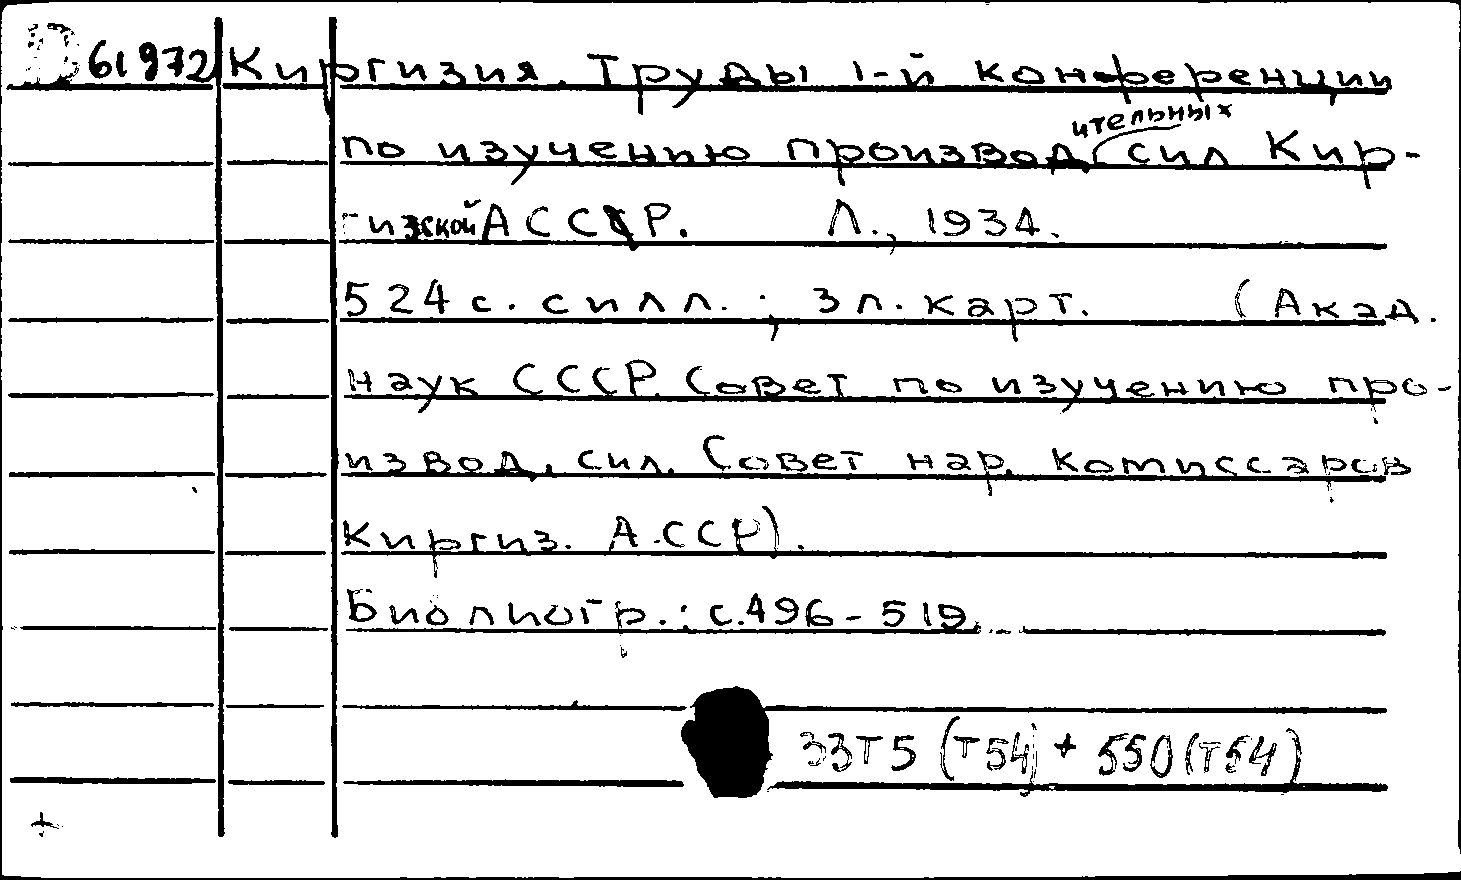 61972 Киргизия. Труды 1-й конференции
по изучению производительных сил Кир-
гизской АССР. Л., 1934.
524 с. с илл.; 3 л. карт. (Акад.
наук СССР. Совет по изучению про-
извод. сил. Совет нар. комиссаров
Киргиз. АССР).
Библиогр.: с. 496-519.
33Т5 (Т54) + 550 (Т54)
+